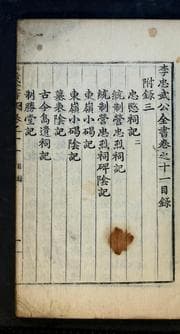 李忠武公全書卷之十一目錄
附錄三
忠愍祠記
統制營忠烈祠記
統制營忠烈祠碑陰記
東嶺小碣記
東嶺小碣陰記
墓表陰記
古今島遺祠記
制勝堂記